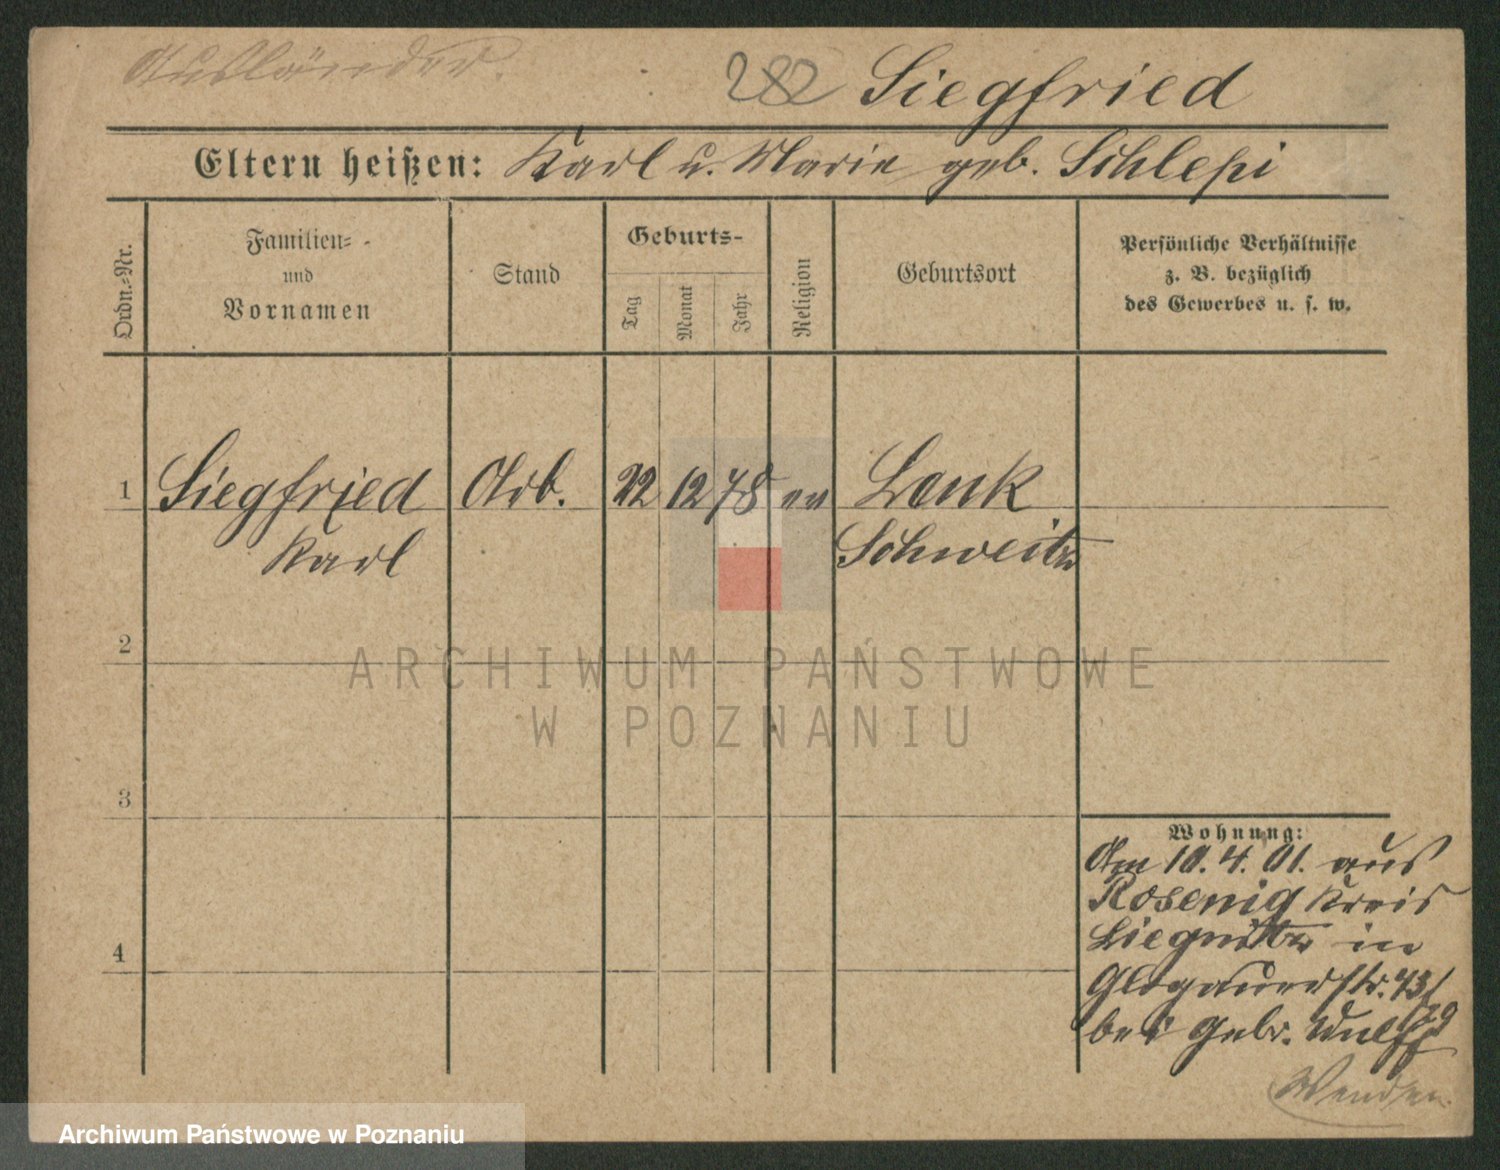 Ausländer.
282 Siegfried
Eltern heißen: Karl u. Marie geb. Schlepi
Ordn.-Nr.
Familien-
und
Vornamen
Stand
Geburts-
Tag
Monat
Jahr
Religion
Geburtsort
Persönliche Verhältnisse
z. B. bezüglich
des Gewerbes u. s. w.
1 Siegfried Arb. 22 12 78 ev Lenk
Karl Schweitz
2
ARCHIWUM PAŃSTWOWE
W POZNANIU
3
Wohnung:
Am 10. 4. 01. aus
Rosenig Kreis
Liegnitz in
4
Glogauerstr. 73/
79
bei Gebr. Wulff
Wenden.
Archiwum Państwowe w Poznaniu